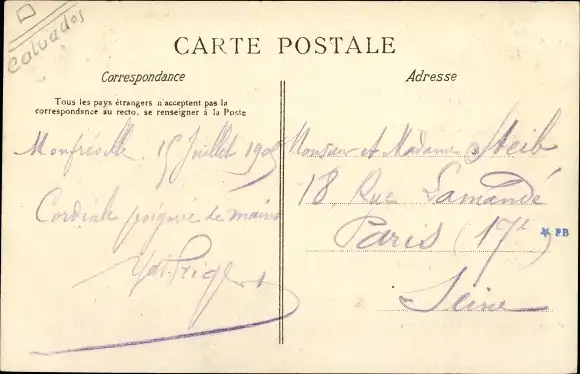 Calvados
CARTE POSTALE
Correspondance
Adresse
Tous les pays étrangers n'acceptent pas la
correspondance au recto, se renseigner à la Poste
Monfréville, 15 Juillet 190
Cordiale poignée de mains
Monsieur et Madame Steib
18, Rue Lamandé
Paris (17e)
Seine
PB